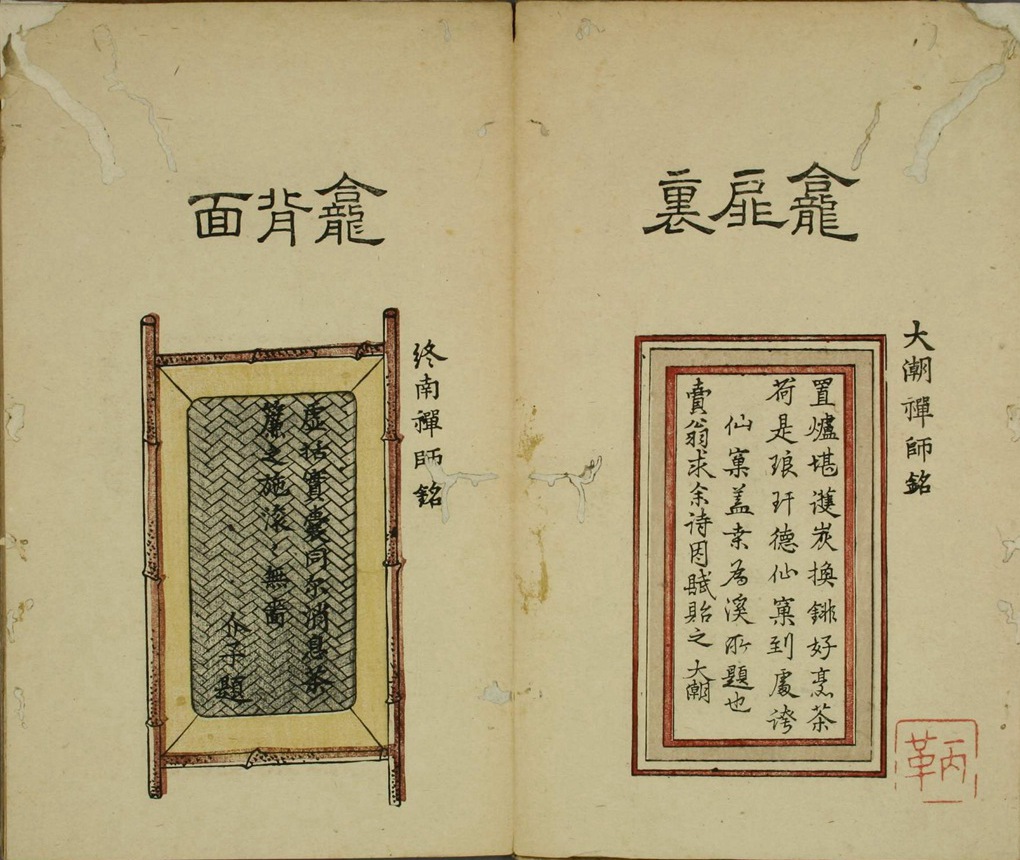 龕扉裏
大潮禪師銘
置爐堪護炭換銚好烹茶
荷是琅玕德仙窠到處誇
仙窠盖為溪所題也
賣翁求余詩因賦貽之 大潮
龕背面
終南禪師銘
虚括實囊同尔消息茶
之施滚〻無嗇
介子題